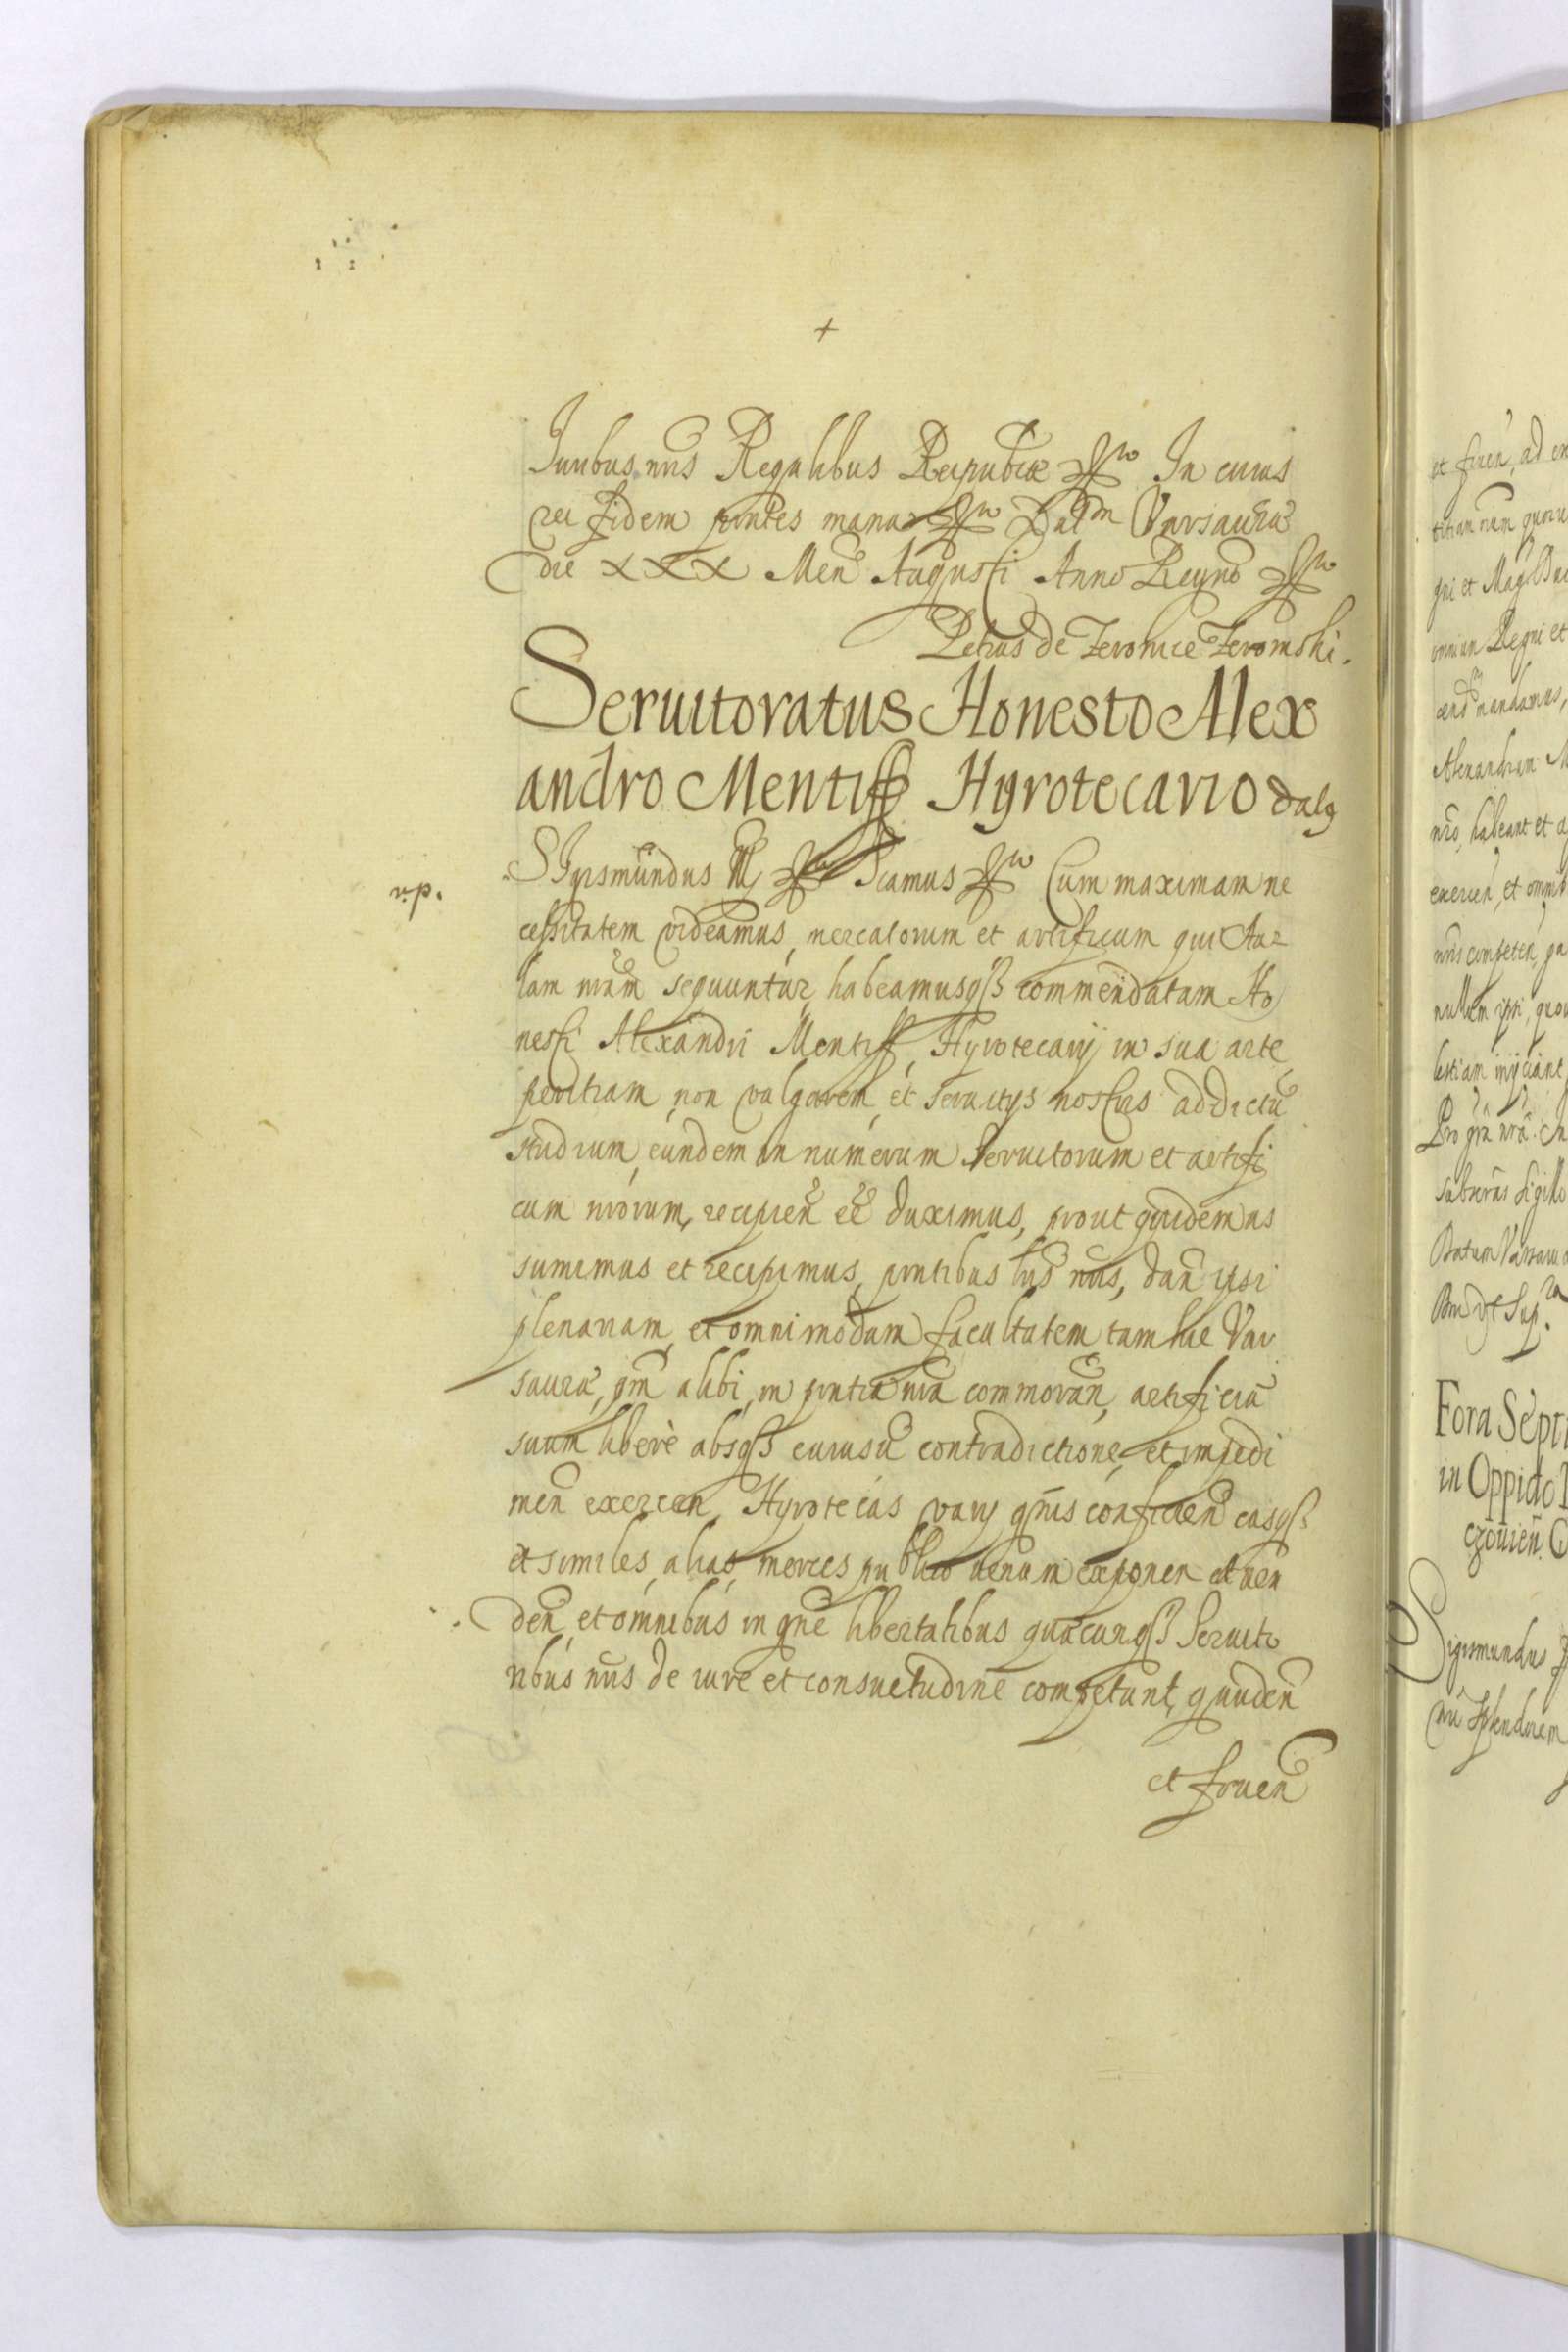 +
Iuribus nr̃is Regalibus Reipubcæ In cuius
rei fidem pr̃ntes manu Datm Varsauiæ
die XXX Men̄ Augusti Anno Regnō
Petrus de Zeronice Zeromski.
Seruitoratus Honesto Alex
andro Mentiff Hyrotecario dalg
v.p.
SIgismundus III Scamus Cum maximam ne
cessitatem videamus, mercatorum et artificum qui Au=
lam nr̃am sequuntur, habeamusqß commendatam Ho
nesti Alexandri Mentiff, Hyrotecarij in sua arte
peritiam non vulgarem, et seruitijs nostris addictū
studium, eundem in numerum Seruitorum et artifi
cum nr̃orum, recipien̄ eē duximus, prout quidem as
sumimus et recipimus, pr̃ntibus lr̃is nr̃is, dan̄ ipsi
plenariam, et omnimodam facultatem, tam hic Var
sauiæ, qm̄ alibi, in pr̃ntia nr̃a commoran̄, artificiū
suum liberè absqß cuiusū contradictione, et impedi
men̄ exercen, Hyrotecas varij gn̄is conficien̄ easqß
et similes, alias, merces publico venum exponen et uen
den̄, et omnibus in gn̄e libertatibus quæcunqß Seruito
ribus nr̃is de iure et consuetudine competunt, gauden̄
et fruen̄
et fruen̄, ad
gni et Mag
omnium Regni et
mandamus,
Alexandrum M
nr̃o, habeant et
exercen̄, et omnib
nr̃is competen̄, ga
nullam ipsi, quou
lestiam inijciant,
Pro gr̃a nr̃a. In
Sigillo
Datum Varsauia
Fora Septi
in Oppido
czouien̄. C
Sigismundus
Splendorem